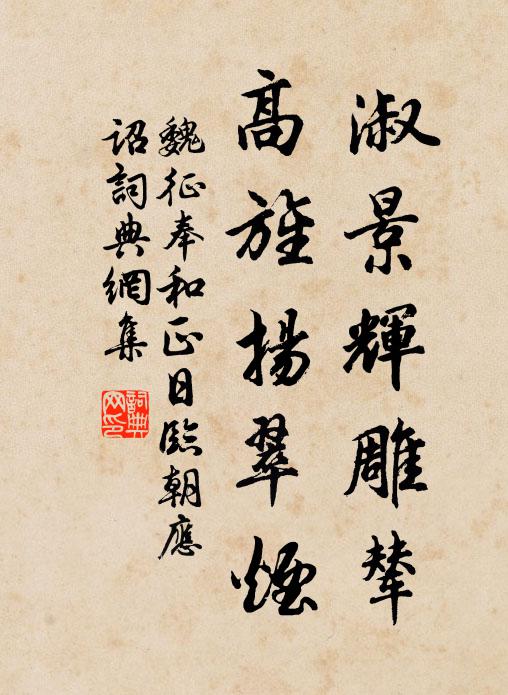 淑景輝雕輦
高旌揚翠煙
魏征奉和正日臨朝應
詔詞典網集
詞典
网印